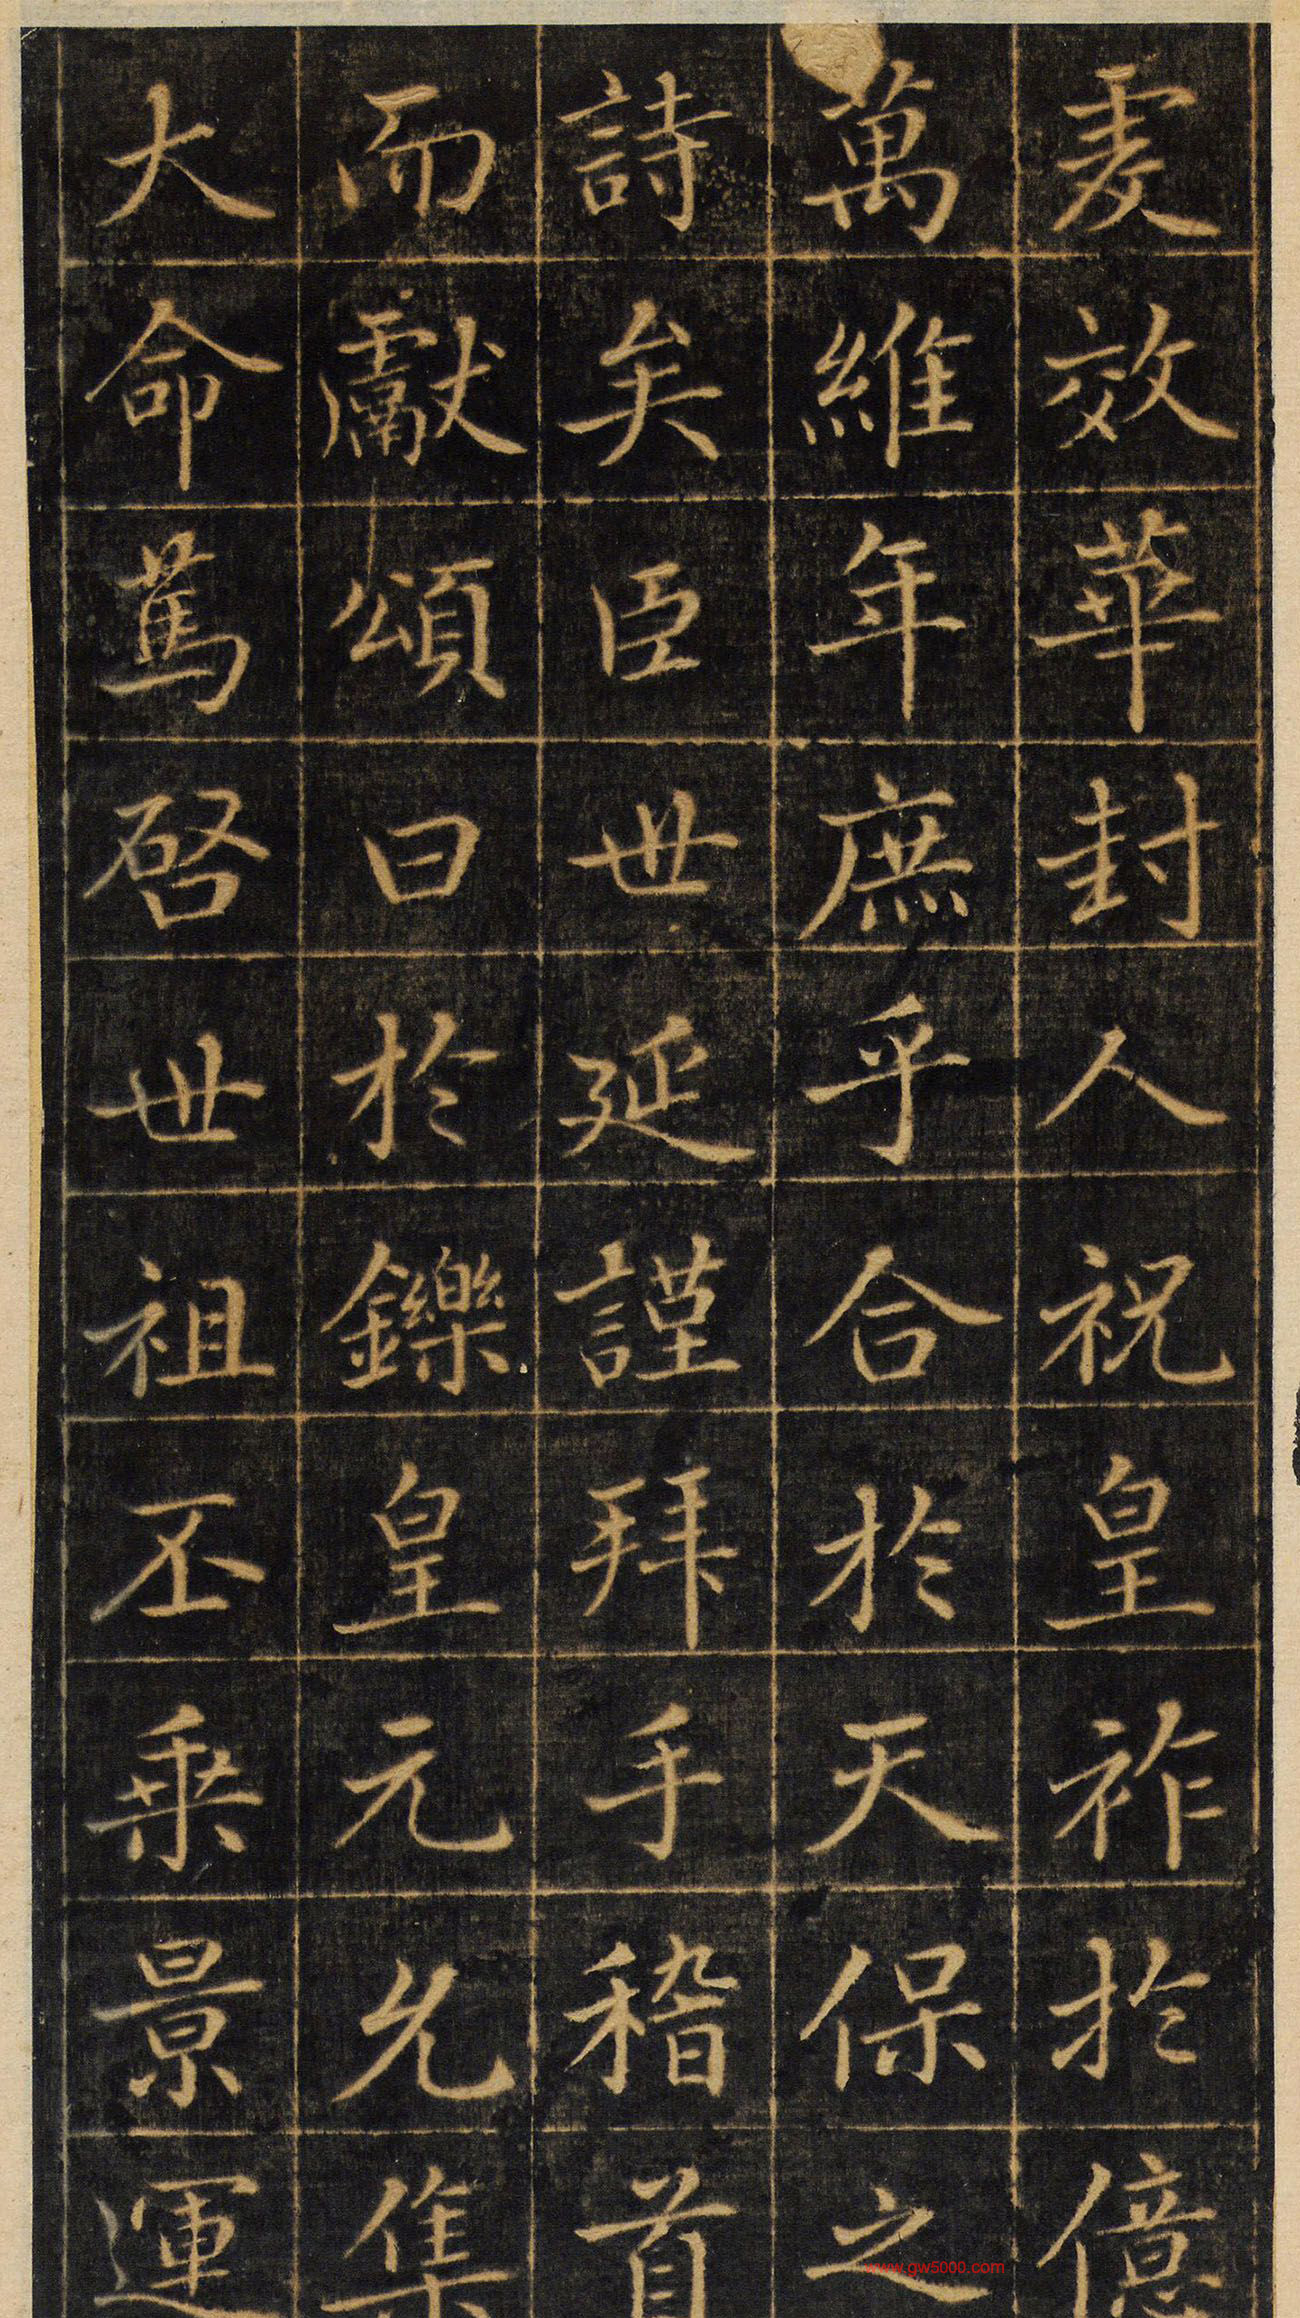 爰效華封人祝皇祚於億
萬維年庶乎合於天保之
詩矣臣世延謹拜手稽首
而獻頌曰於鑠皇元允集
大命篤啓世祖丕乗景運
www.gw5000.com